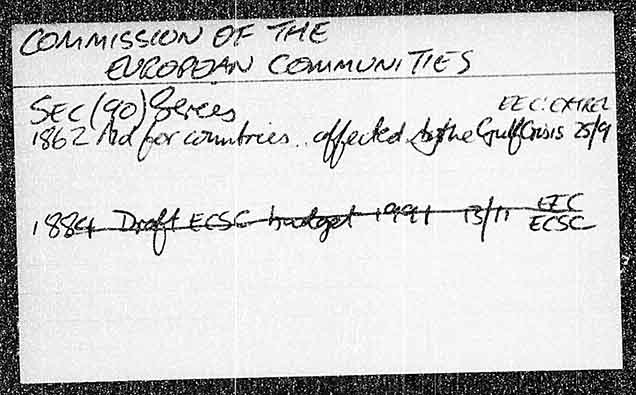 COMMISSION OF THE
EUROPEAN COMMUNITIES
SEC(90) Series
EEC: EXTREL
1862 Aid for countries affected by the Gulf Crisis 25/9
1884 Draft ECSC budget 1991 13/11 EEC
ECSC